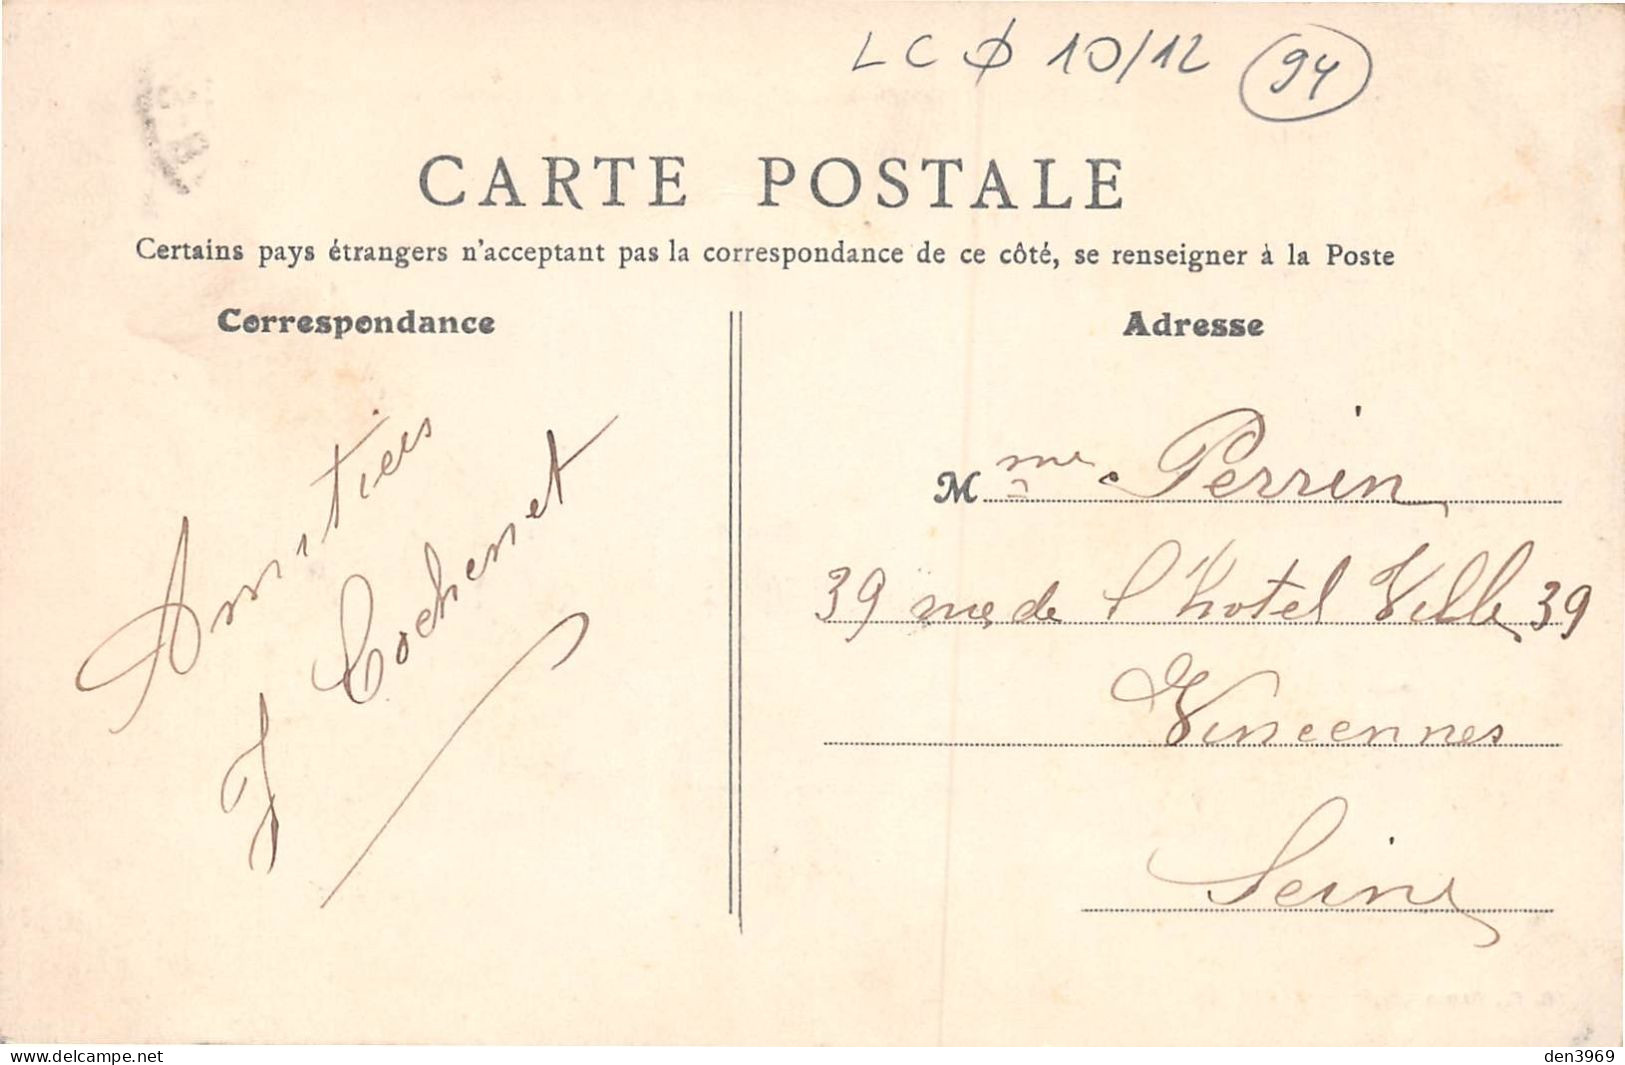 LC ϕ 10/12 94
CARTE POSTALE
Certains pays étrangers n'acceptant pas la correspondance de ce côté, se renseigner à la Poste
Correspondance
Amitiés
J Cochenet
Adresse
Mme Perrin
39 rue de l'hotel Ville 39
Vincennes
Seine
www.delcampe.net
den3969